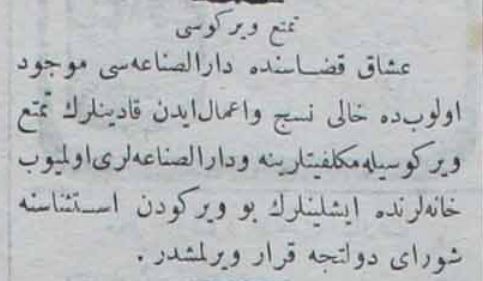 تمتع ویركوسی
عشاق قضاسنده دارالصناعه‌سی موجود
اولوب‌ده خالی نسج واعمال‌ایدن قادینلرك تمتع
ویركوسیله‌مكلفیتلرینه ودارالصناعه‌لری‌اولمیوب
خانه‌لرنده ایشلینلرك بو ویركودن استثناسنه
شورای دولتجه قرار ویرلمشدر .